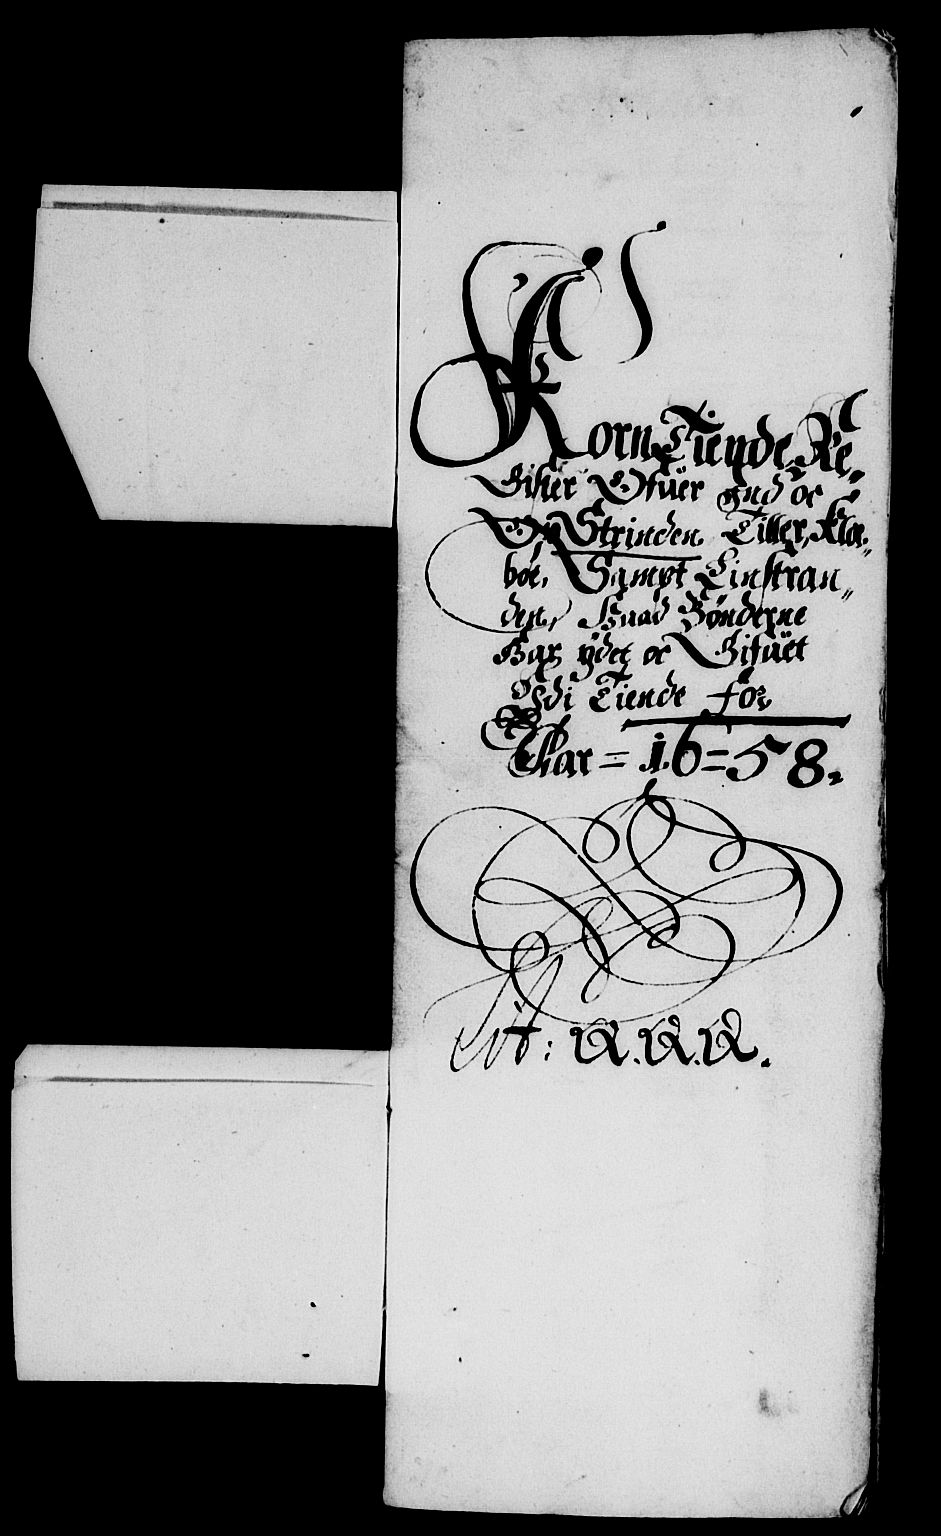 Korn Tiende Re„
gister Ofuer ynd oc
By Strinden, Tiller, Klæ„
boe, Sampt Leinstran„
den, Huad Bønderne
Har ydet oc Gifuet
Udi Tiende for
Aar = 16=58.
Lit: R. R. R.